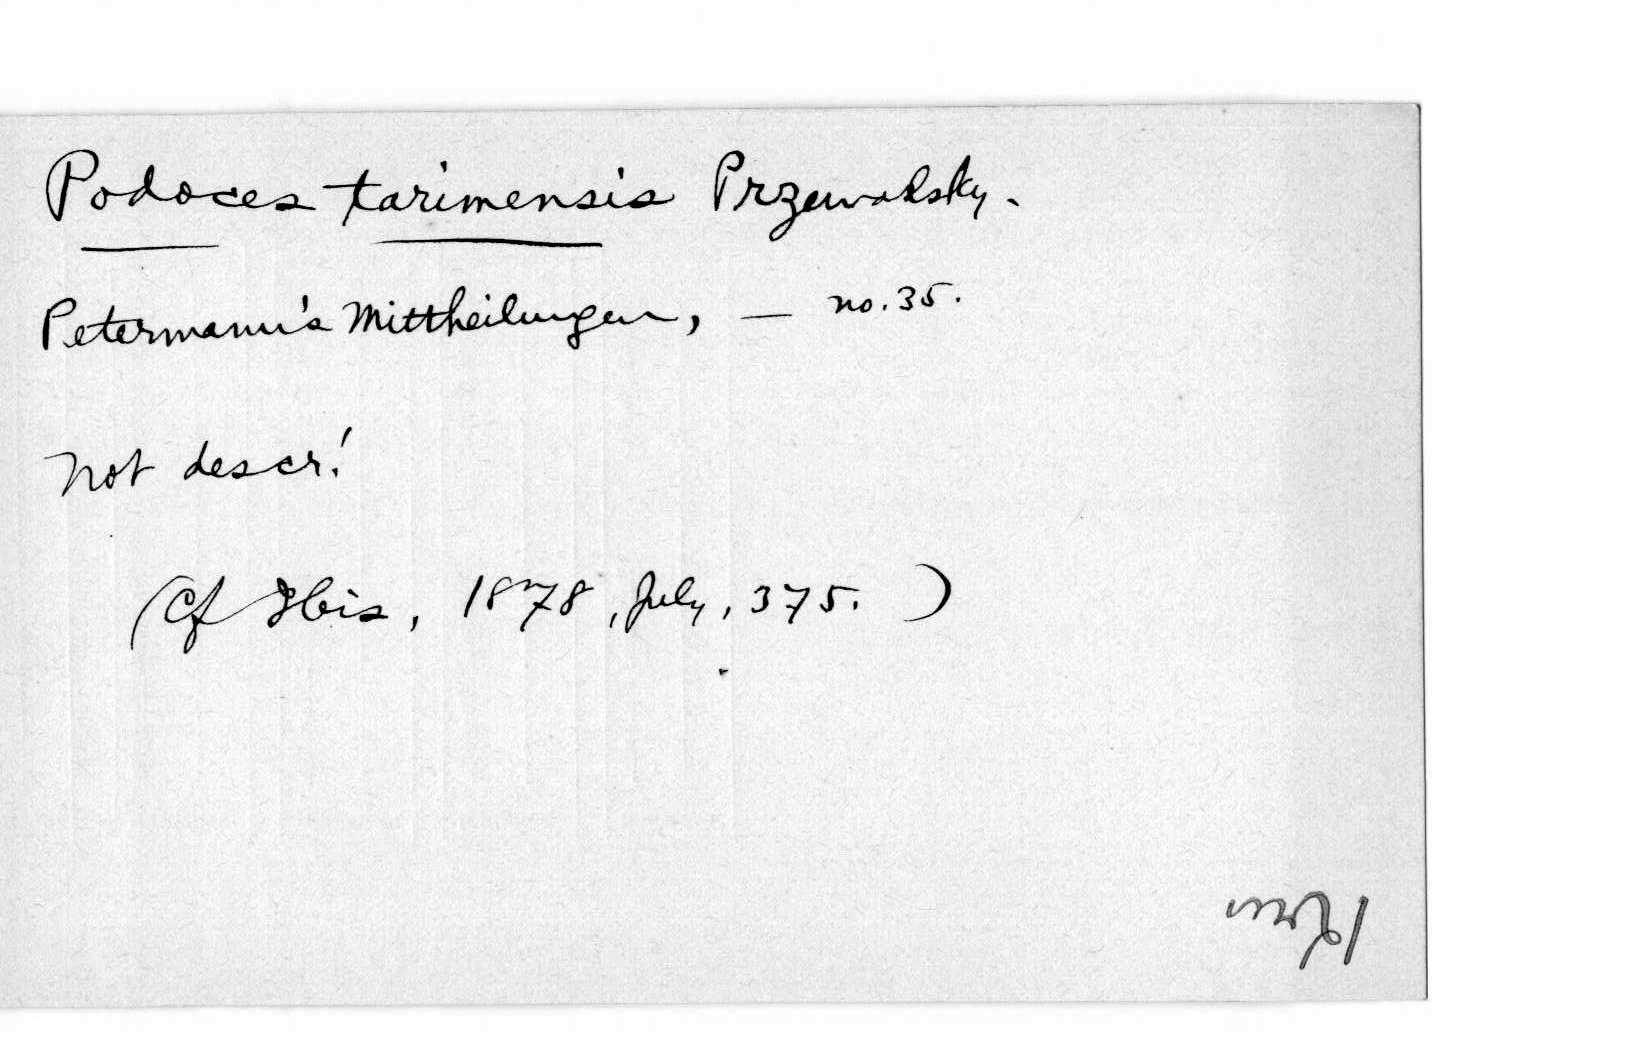 Podoces tarimensis Przewalsky.
Petermann's Mittheilungen, — no. 35.
Not descr!
(Cf Ibis, 1878, July, 375. )